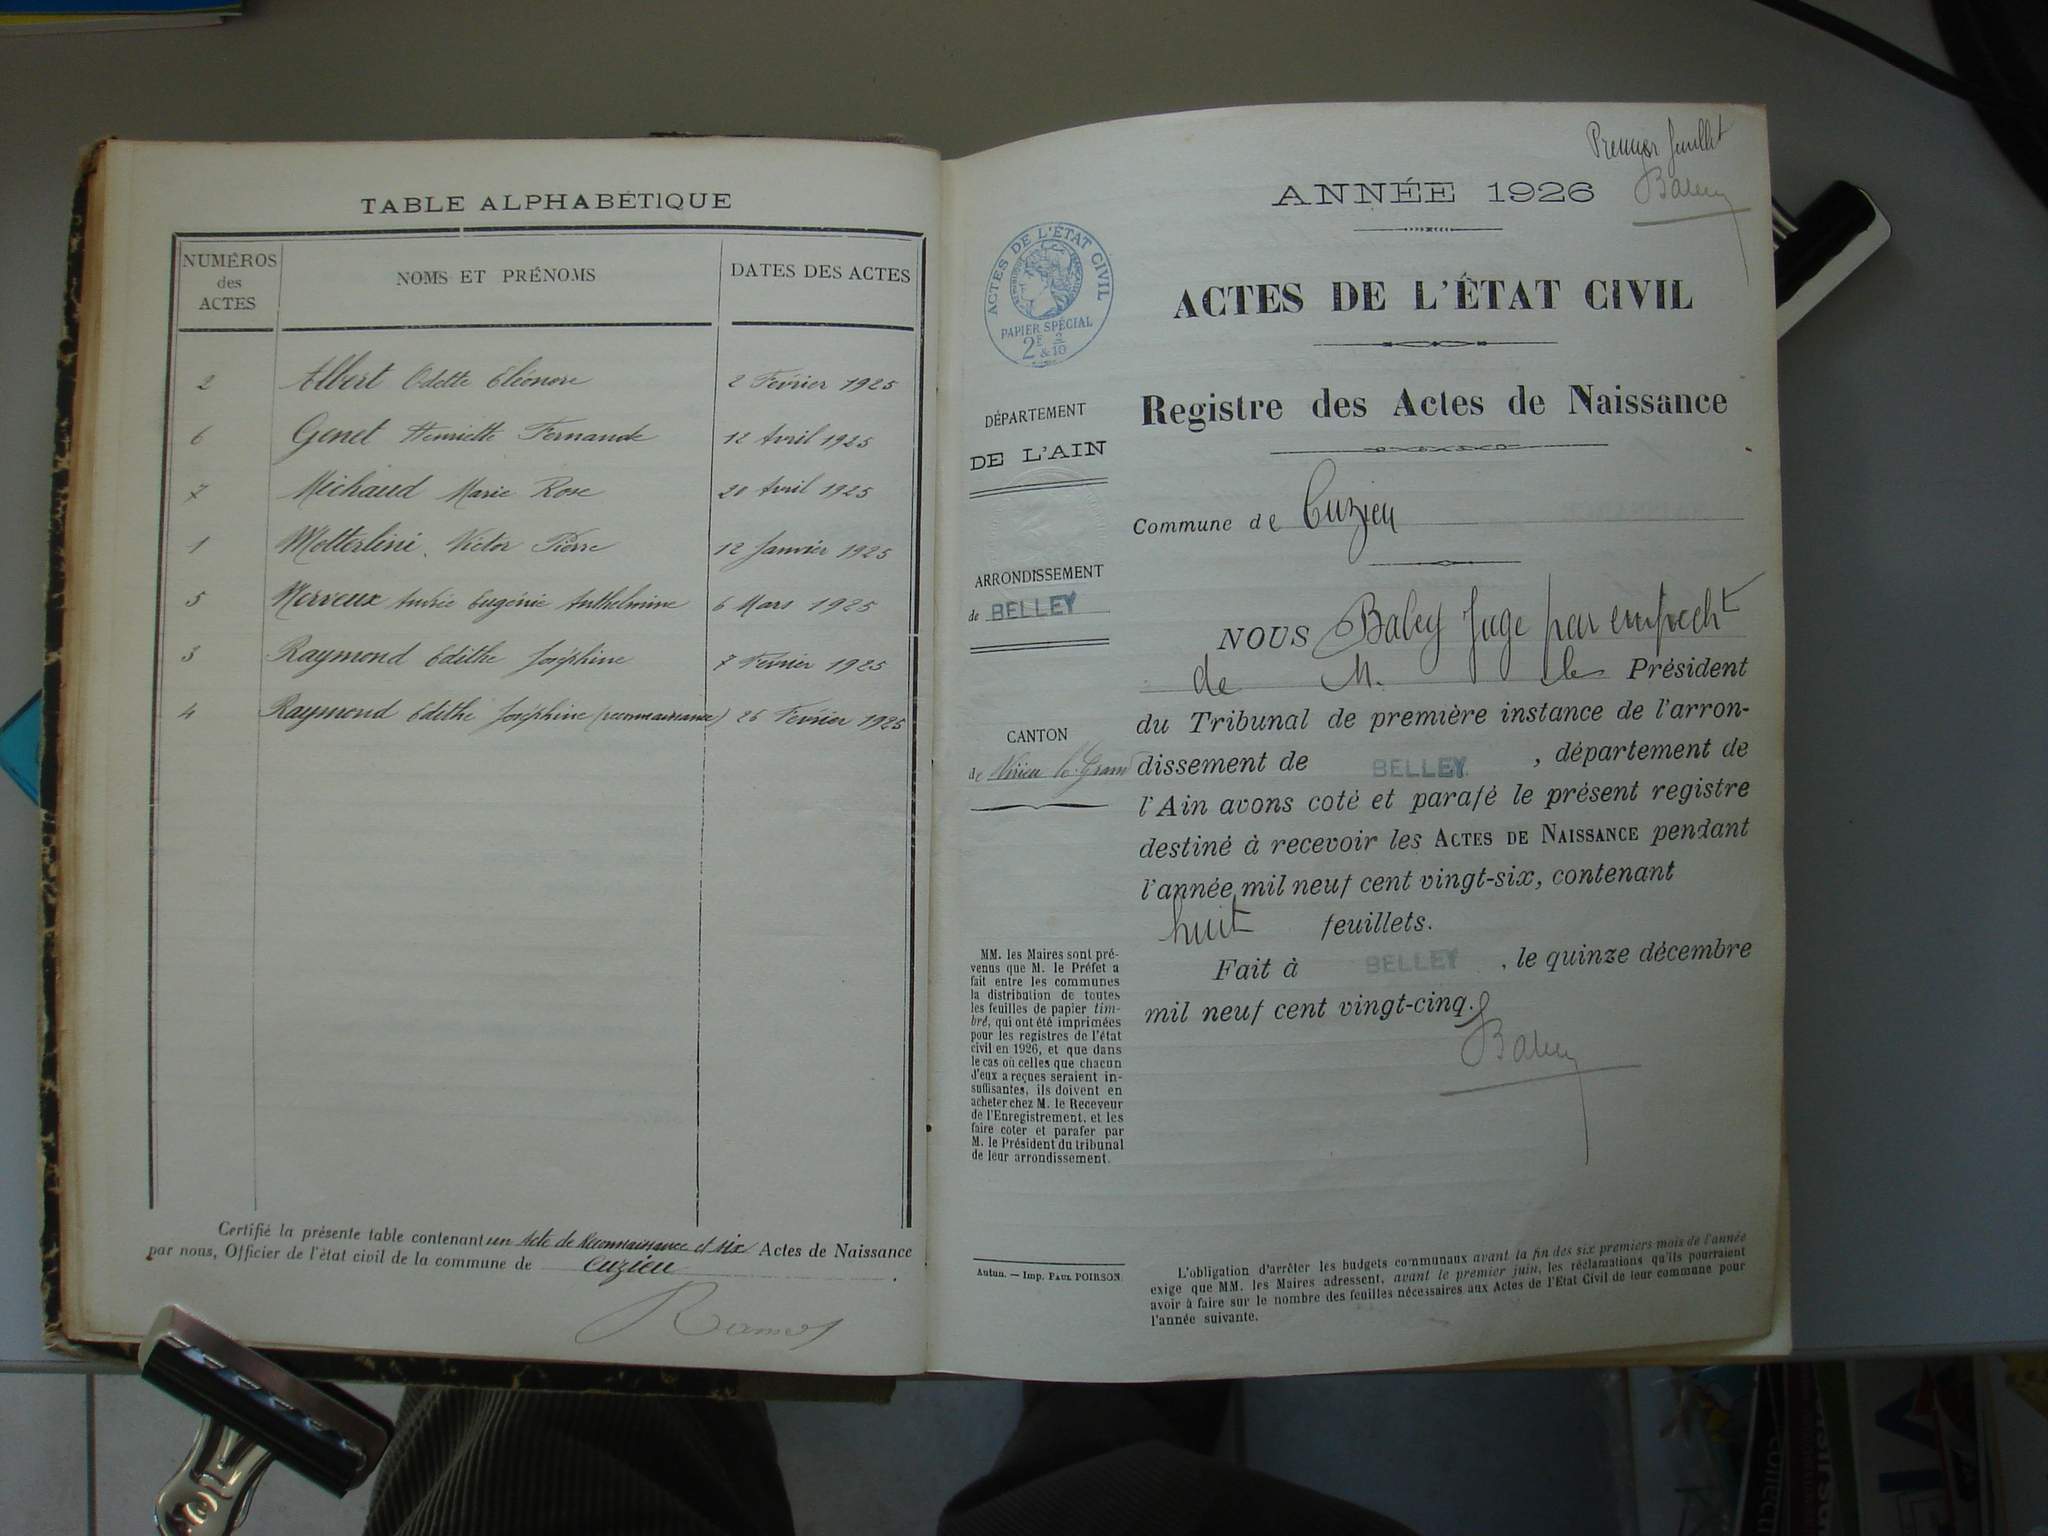 TABLE ALPHABÉTIQUE
NUMÉROS des ACTES
NOMS ET PRÉNOMS
DATES DES ACTES
2 Albert Odette Eléonore 2 Février 1925
6 Genet Henriette Fernande 12 Avril 1925
7 Michaud Marie Rose 20 Avril 1925
1 Molterlini Victor Pierre 12 Janvier 1925
5 Nerveux Andrée Eugénie Anthelmine 6 Mars 1925
3 Raymond Edithe Joséphine 7 Février 1925
4 Raymond Edithe Joséphine (reconnaissance) 26 Février 1925
Certifié la présente table contenant un Acte de Reconnaissance et six Actes de Naissance
par nous, Officier de l'état civil de la commune de Cuzieu
Premier feuillet
ANNÉE 1926
Baley
ACTES DE L'ÉTAT CIVIL
PAPIER SPÉCIAL
2F & 2/10
ACTES DE L'ÉTAT CIVIL
Registre des Actes de Naissance
DÉPARTEMENT
DE L'AIN
ARRONDISSEMENT
de BELLEY
CANTON
de Virieu le Grand
MM. les Maires sont pré-
venus que M. le Préfet a
fait entre les communes
la distribution de toutes
les feuilles de papier tim-
bré, qui ont été imprimées
pour les registres de l'état
civil en 1926, et que dans
le cas où celles que chacun
d'eux a reçues seraient in-
suffisantes, ils doivent en
acheter chez M. le Receveur
de l'Enregistrement, et les
faire coter et parafer par
M. le Président du tribunal
de leur arrondissement.
Autun. — Imp. PAUL POIRSON
Commune de Cuzieu
NOUS Baley Juge par empecht
de M. le Président
du Tribunal de première instance de l'arron-
dissement de BELLEY, département de
l'Ain avons coté et parafé le présent registre
destiné à recevoir les ACTES DE NAISSANCE pendant
l'année mil neuf cent vingt-six, contenant
huit feuillets.
Fait à BELLEY, le quinze décembre
mil neuf cent vingt-cinq.
Baley
L'obligation d'arrêter les budgets communaux avant la fin des six premiers mois de l'année
exige que MM. les Maires adressent, avant le premier juin, les réclamations qu'ils pourraient
avoir à faire sur le nombre des feuilles nécessaires aux Actes de l'État Civil de leur commune pour
l'année suivante.